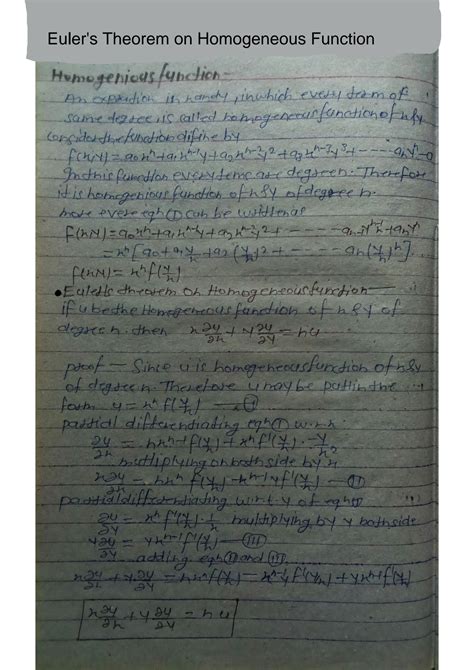 Euler's Theorem on Homogeneous Function
Homogenious function –
An expration in x and y, in which every term of
same degree is called homogeneous function of x & y
Consider the function difine by
f(x,y) = a₀xⁿ + a₁xⁿ⁻¹y + a₂xⁿ⁻²y² + a₃xⁿ⁻³y³ + ----- aₙyⁿ –①
In this function every tems are degree n. Therefore
it is homogenious function of x & y of degree n.
more evere eqⁿ ① can be written as
f(x,y) = a₀xⁿ + a₁xⁿ⁻¹y + a₂xⁿ⁻²y² + ----- + aₙyⁿ
= xⁿ[a₀ + a₁ y/x + a₂(y/x)² + ----- aₙ(y/x)ⁿ].
f(x,y) = xⁿ f(y/x)
• Euler's theorem on Homogeneous function –
if u be the Homogeneous function of x & y of
degree n. then x ∂u/∂x + y ∂u/∂y = nu
proof – Since u is homogeneous function of x & y
of degree n. Therefore u may be put in the
form u = xⁿ f(y/x) —①
partial differentiating eqⁿ ① w.r.t. x
∂u/∂x = nxⁿ⁻¹ f(y/x) + xⁿ f'(y/x) · -y/x²
multiplying on both side by x
x ∂u/∂x = nxⁿ f(y/x) - xⁿ⁻¹ y f'(y/x) —②
partial differentiating w.r.t. y of eqⁿ ①
∂u/∂y = xⁿ f'(y/x) · 1/x multiplying by y both side
y ∂u/∂y = yxⁿ⁻¹ f'(y/x) —③
adding eqⁿ ② and ③
x ∂u/∂x + y ∂u/∂y = nxⁿ f(y/x) - xⁿ⁻¹ y f'(y/x) + yxⁿ⁻¹ f'(y/x)
x ∂u/∂x + y ∂u/∂y = nu